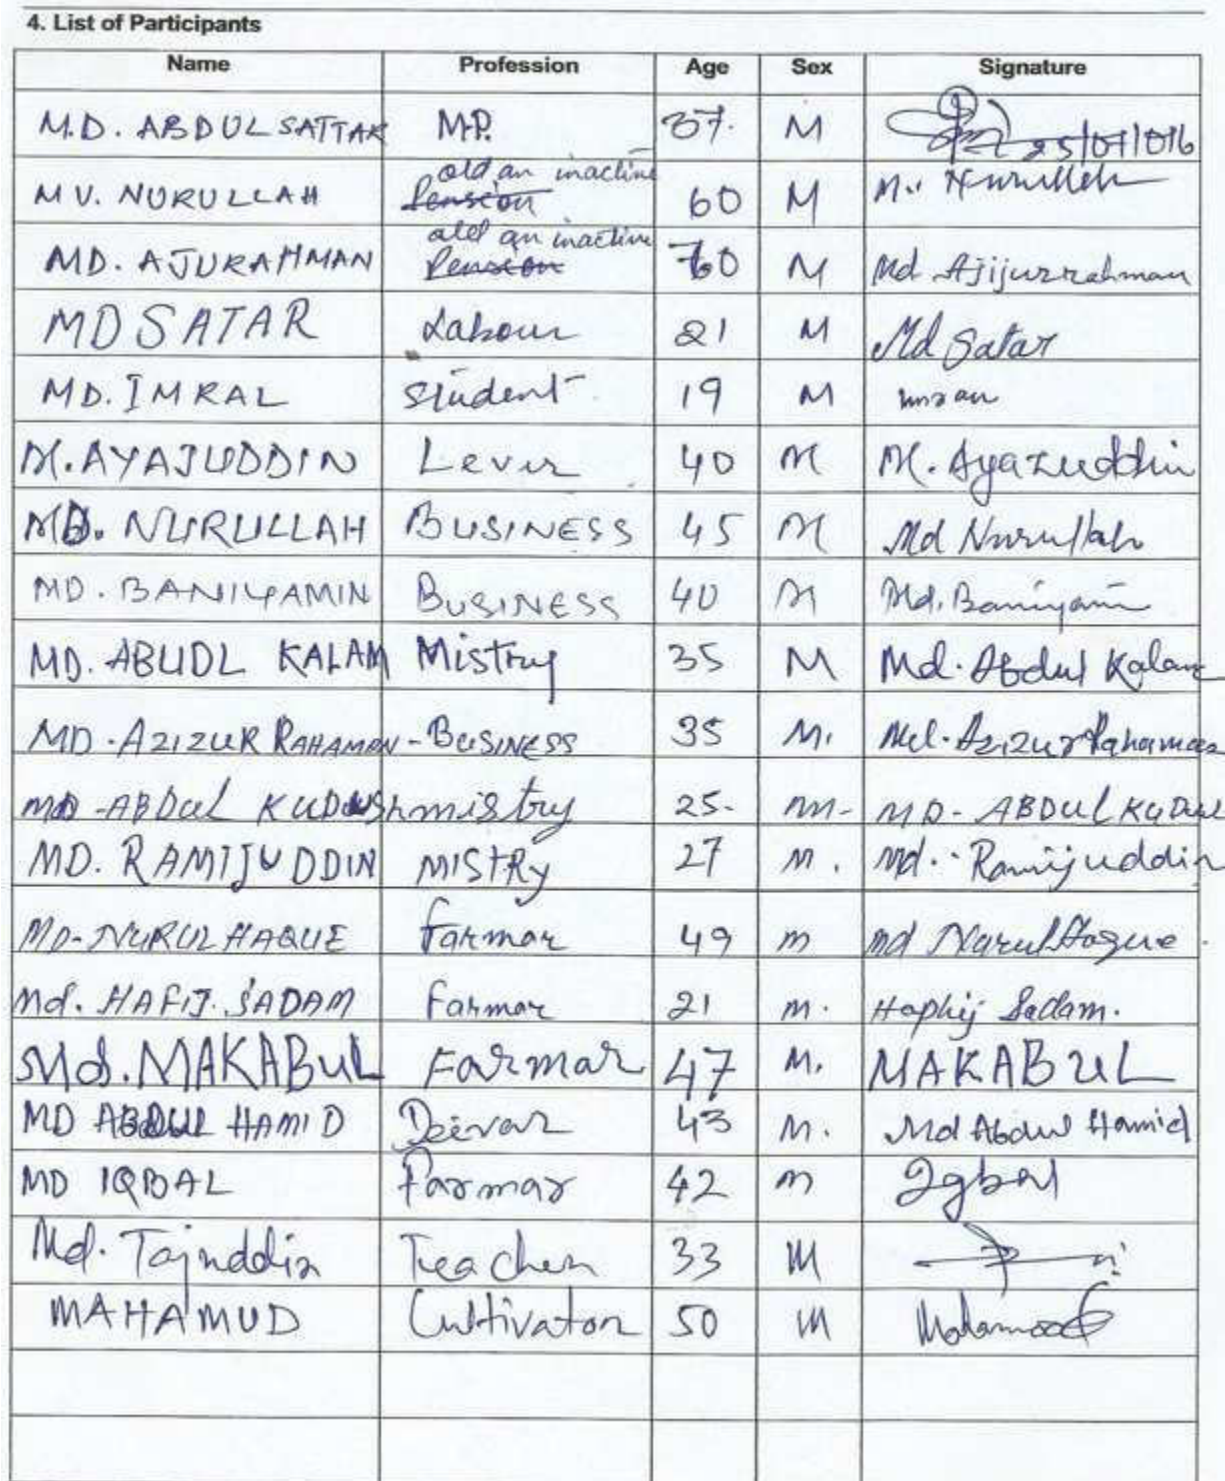 4. List of Participants
Name Profession Age Sex Signature
M.D. ABDUL SATTAR M.P. 37. M 25/07/016
MV. NURULLAH old an inactive Pension 60 M Mv Nurulleh
MD. AJURAHMAN old an inactive Pension 70 M Md Ajijurrahman
MD SATAR Labour 21 M Md Satar
MD. IMRAL Student 19 M imran
M. AYAJUDDIN Lever 40 M M. Ayazuddin
MD. NURULLAH BUSINESS 45 M Md Nurullah
MD. BANIYAMIN BUSINESS 40 M Md. Baniyami
MD. ABUDL KALAM Mistry 35 M Md. Abdul Kalam
MD. AZIZUR RAHAMAN - BUSINESS 35 M. Md. Azizur Rahaman
MD - ABDUL KUDUSh mistry 25- m- MD- ABDUL KUDUS
MD. RAMIJUDDIN MISTRY 27 M. Md. Ramijuddin
MD- NURUL HAQUE Farmar 49 m md Narul Haque.
Md. HAFIJ. SADAM Farmar 21 m. Haphij Sadam.
Md. MAKABUL FARMAR 47 M. MAKABUL
MD ABDUL HAMID Deevar 43 M. Md Abdul Hamid
MD IQBAL Farmar 42 m Iqbal
Md. Tajuddin Teacher 33 M
MAHAMUD Cultivator 50 M Mohamood